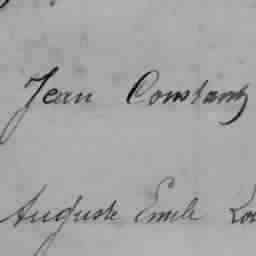 Jean Constant
Auguste Emile